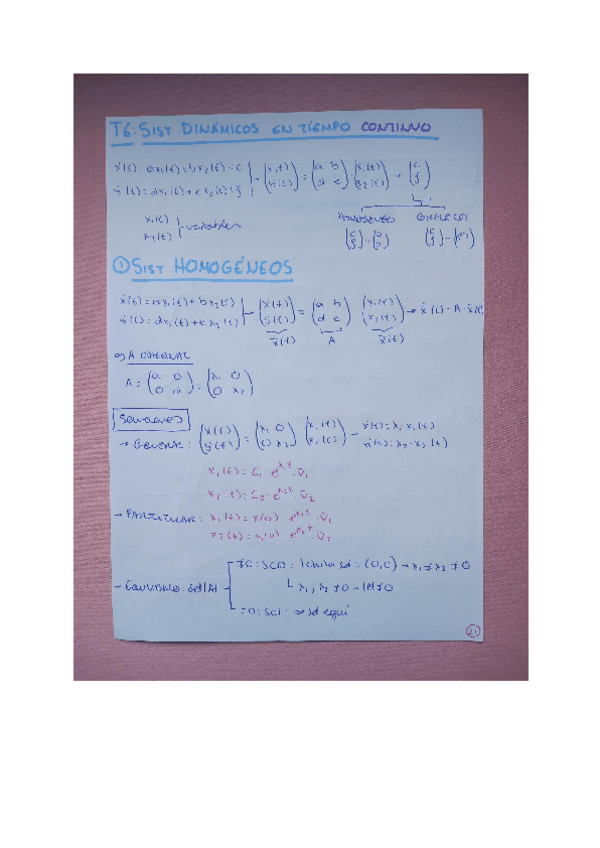 T6: SIST DINÁMICOS EN TIEMPO CONTINUO
ẋ(t) = ax₁(t) + bx₂(t) + c } → (ẋ(t) ẏ(t)) = (a b d e) · (x₁(t) x₂(t)) + (c f)
ẏ(t) = dx₁(t) + ex₂(t) + f
x₁(t) x₂(t) } variables
HOMOGÉNEO COMPLETO
(c f) = (0 0) (c f) =
① SIST HOMOGÉNEOS
ẋ(t) = ax₁(t) + bx₂(t) } → (ẋ(t) ẏ(t)) = (a b d e) (x₁(t) x₂(t)) → ẋ(t) = A · x̄(t)
ẏ(t) = dx₁(t) + ex₂(t)
ẋ(t) A x̄(t)
a) A DIAGONAL
A = (a 0 0 ) = (λ₁ 0 0 λ₂)
SOLUCIONES
→ GENERAL: (ẋ(t) ẏ(t)) = (λ₁ 0 0 λ₂) (x₁(t) x₂(t)) → ẋ(t) = λ₁ x₁(t)
ẏ(t) = λ₂ · x₂(t)
x₁(t) = C₁ · e^λ₁t · v̄₁
x₂(t) = C₂ · e^λ₂t · v̄₂
→ PARTICULAR: x₁(t) = x(0) e^λ₁t · v̄₁
x₂(t) = y(0) e^λ₂t · v̄₂
≠0: SCD: 1 única sol: (0,0) → λ₁ ≠ λ₂ ≠ 0
→ |A|
λ₁, λ₂ ≠ 0 → |A| ≠ 0
=0: SCI: ∞ sol equi
21